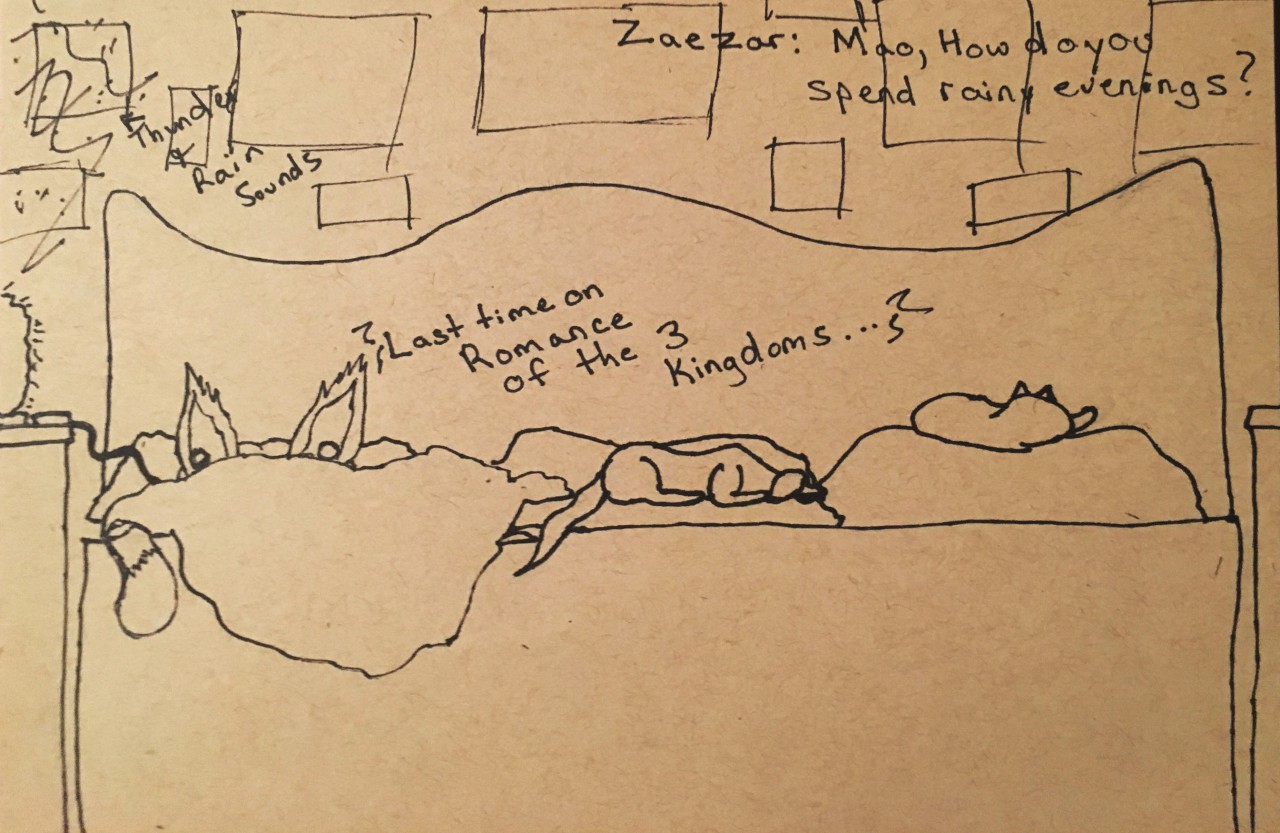 Zaezar: Mao, How do you
spend rainy evenings?
Thunder
&
Rain
Sounds
Last time on
Romance
of the 3
Kingdoms...